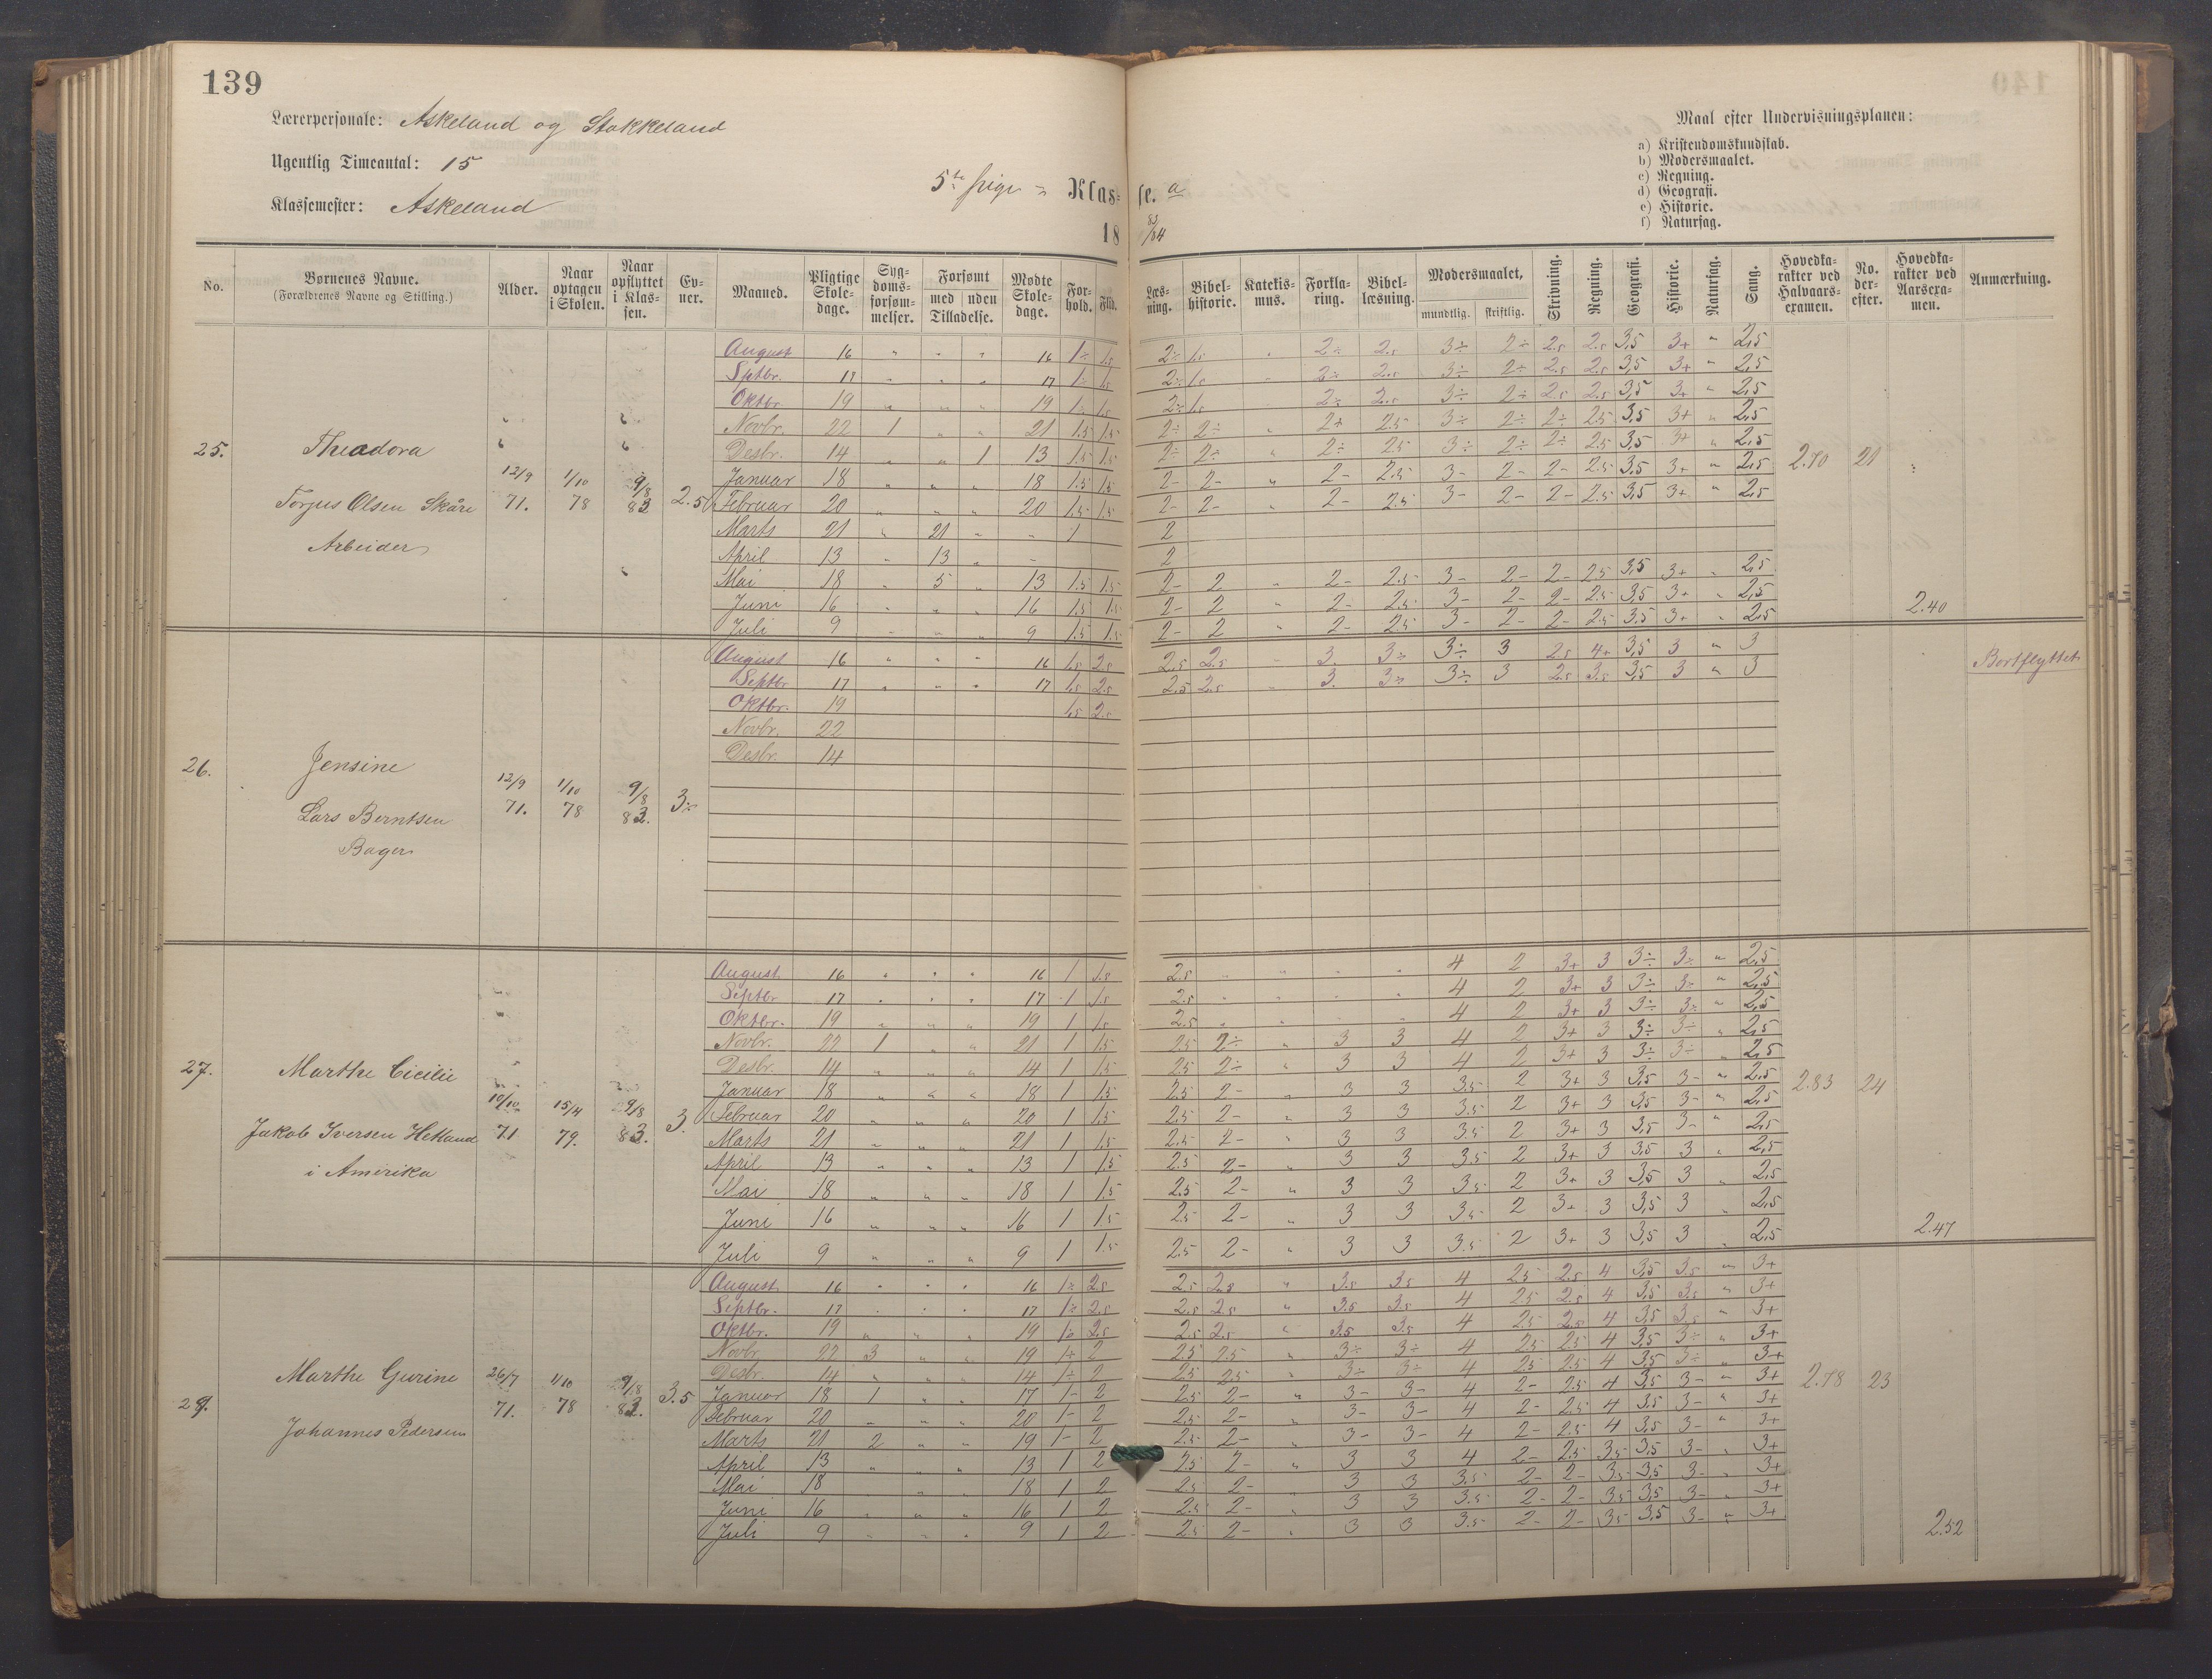 139
Lærerpersonale: Askeland og Stokkeland
Ugentlig Timeantal: 15
Klassemester: Askeland
5te pige = Klasse. a
18 83/84
Maal efter Undervisningsplanen:
a) Kristendomskundskab.
b) Modersmaalet.
c) Regning.
d) Geografi.
e) Historie.
f) Naturfag.
No. | Børnenes Navne. (Forældrenes Navne og Stilling.) | Alder. | Naar optagen i Skolen. | Naar opflyttet i Klassen. | Evner. | Maaned. | Pligtige Skoledage. | Sygdomsforsømmelser. | Forsømt med Tilladelse. | uden Tilladelse. | Mødte Skoledage. | Forhold. | Flid. | Læsning. | Bibelhistorie. | Katekismus. | Forklaring. | Bibellæsning. | Modersmaalet, mundtlig. | skriftlig. | Skrivning. | Regning. | Geografi. | Historie. | Naturfag. | Sang. | Hovedkarakter ved Halvaarsexamen. | No. derefter. | Hovedkarakter ved Aarsexamen. | Anmærkning.
25. Theodora
Torjus Olsen Skåre
Arbeider
12/9 71. 1/10 78 9/8 83 2.5
August 16 " " " 16 1÷ 1.5 2÷ 1.5 " 2÷ 2.5 3÷ 2÷ 2.5 2.5 3,5 3+ " 2,5
Sptbr. 17 " " " 17 1÷ 1.5 2÷ 1.5 " 2÷ 2.5 3÷ 2÷ 2.5 2.5 3,5 3+ " 2,5
Oktbr. 19 " " " 19 1÷ 1.5 2÷ 1.5 2÷ 2.5 3÷ 2÷ 2.5 2.5 3,5 3+ " 2,5
Novbr. 22 1 " " 21 1.5 1.5 2÷ 2÷ " 2+ 2.5 3÷ 2÷ 2÷ 2.5 3,5 3+ " 2,5
Desbr. 14 " " 1 13 1.5 1.5 2÷ 2÷ " 2÷ 2.5 3÷ 2÷ 2÷ 2.5 3,5 3+ " 2,5
Januar 18 " " " 18 1.5 1.5 2- 2- " 2- 2.5 3- 2- 2- 2.5 3,5 3+ " 2,5
2.70 21
Februar 20 " " " 20 1.5 1.5 2- 2- " 2- 2.5 3- 2- 2- 2.5 3,5 3+ " 2,5
Marts 21 " 21 " " 1 2
April 13 " 13 " - 2
Mai 18 " 5 " 13 1.5 1.5 2- 2 " 2- 2.5 3- 2- 2- 2.5 3,5 3+ " 2,5
Juni 16 " " " 16 1.5 1.5 2- 2 " 2- 2.5 3- 2- 2- 2.5 3,5 3+ " 2,5
Juli 9 " " " 9 1.5 1.5 2- 2 " 2- 2.5 3- 2- 2- 2.5 3.5 3+ " 2,5
2.40
26. Jensine
Lars Berntsen
Bager
12/9 71. 1/10 78 9/8 83. 3÷
August 16 " " " 16 1.5 2.5 2.5 2.5 " 3. 3÷ 3÷ 3 2.5 4+ 3,5 3 " 3
Septbr 17 " " " 17 1.5 2.5 2.5 2.5 " 3. 3÷ 3÷ 3 2.5 3.5 3,5 3 " 3
Oktbr. 19 1.5 2.5
Novbr. 22
Desbr. 14
Bortflyttet
27. Marthe Cicilie
Jakob Iversen Hetland
i Amerika
10/10 71 15/4 79. 9/8 83. 3.
August 16 " " " 16 1 1.5 2.5 " " " " 4 2 3+ 3 3÷ 3÷ " 2,5
Septbr 17 " " " 17 1 1.5 2.5 " " " " 4 2 3+ 3 3÷ 3÷ " 2,5
Oktbr. 19 " " " 19 1 1.5 2.5 " " " " 4 2 3+ 3 3÷ 3÷ " 2,5
Novbr. 22 1 " " 21 1 1.5 2.5 2÷ " 3 3 4 2 3+ 3 3÷ 3÷ " 2,5
Desbr. 14 " " " 14 1 1.5 2.5 2÷ " 3 3 4 2 3+ 3 3÷ 3÷ " 2,5
Januar 18 " " " 18 1 1.5 2.5 2- " 3 3 3.5 2 3+ 3 3,5 3- " 2,5
2.83 24
Februar 20 " " " 20 1 1.5 2.5 2- " 3 3 3.5 2 3+ 3 3,5 3- " 2,5
Marts 21 " " " 21 1 1.5 2.5 2- " 3 3 3.5 2 3+ 3 3,5 3- 2,5
April 13 " " " 13 1 1.5 2.5 2- " 3 3 3.5 2 3+ 3 3,5 3 " 2,5
Mai 18 " " " 18 1 1.5 2.5 2- " 3 3 3.5 2 3+ 3 3,5 3 " 2,5
Juni 16 " " " 16 1 1.5 2.5 2- " 3 3 3.5 2 3+ 3 3,5 3 " 2,5
Juli 9 " " " 9 1 1.5 2.5 2- " 3 3 3.5 2 3+ 3 3,5 3 " 2,5
2.47
Marthe Gurine
Johannes Pedersen
26/7 71. 1/10 78 9/8 83. 3.5
August 16 " " " 16 1÷ 2.5 2.5 2.5 " 3.5 3.5 4 2.5 2.5 4 3,5 3.5 " 3+
Septbr. 17 " " " 17 1÷ 2.5 2.5 2.5 " 3.5 3.5 4 2.5 2.5 4 3,5 3.5 " 3+
Oktbr. 19 " " " 19 1÷ 2.5 2.5 2.5 " 3.5 3.5 4 2.5 2.5 4 3,5 3.5 " 3+
Novbr 22 3 " " 19 1÷ 2 2.5 2.5 " 3÷ 3÷ 4 2.5 2.5 4 3,5 3÷ " 3+
Desbr. 14 " " " 14 1÷ 2 2.5 2.5 " 3÷ 3÷ 4 2.5 2.5 4 3,5 3÷ " 3+
Januar 18 1 " " 17 1- 2 2.5 2- " 3- 3- 4 2- 2.5 4 3,5 3- " 3+
2.78 23
Februar 20 " " " 20 1- 2 2.5 2- " 3- 3- 4 2- 2.5 4 3,5 3- " 3+
Marts 21 2 " " 19 1- 2 2.5 2- " 3- 3- 4 2- 2.5 4 3,5 3- " 3+
April 13 " " " 13 1 2 2.5 2- " 3 3 4 2- 2.5 3.5 3,5 3- " 3+
Mai 18 " " " 18 1 2 2.5 2- " 3 3 3.5 2- 2- 3.5 3,5 3- " 3+
Juni 16 " " " 16 1 2 2.5 2- " 3 3 3.5 2- 2- 3.5 3,5 3- " 3+
Juli 9 " " " 9 1 2 2.5 2- " 3 3 3.5 2- 2- 3.5 3,5 3- " 3+
2.52